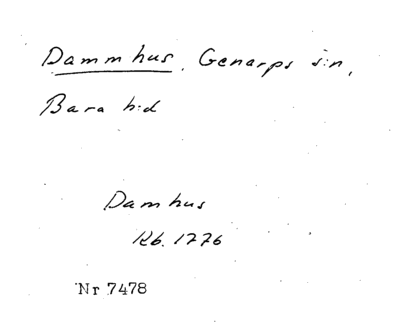 Dammhus, Genarps s:n,
Bara h:d
Damhus
Kb. 1776
Nr 7478